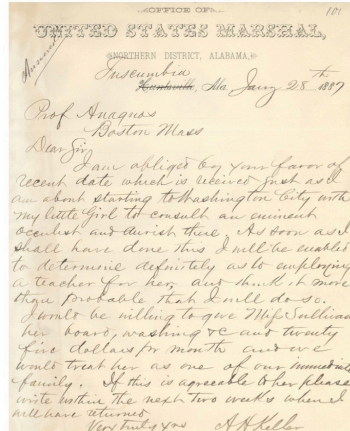 OFFICE OF
101
UNITED STATES MARSHAL,
NORTHERN DISTRICT, ALABAMA,
Answered
Tuscumbia
Huntsville, Ala. Jany 28th 1887
Prof Anagnos
Boston Mass
Dear Sir,
I am obliged by your favor of
recent date which is received just as I
am about starting to Washington City with
my little Girl to consult an eminent
occulist and aurist there. As soon as I
shall have done this I will be enabled
to determine definitely as to employing
a teacher for her, and think it more
than probable that I will do so.
I would be willing to give Miss Sullivan
her board, washing &C and twenty
five dollars pr month and we
would treat her as one of our immediate
family. If this is agreeable to her please
write within the next two weeks when I
will have returned
Very truly yrs A H Keller